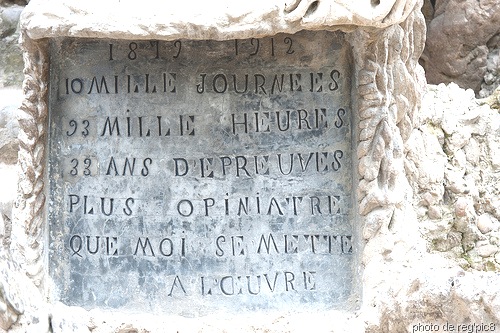 1879 1912
10 MILLE JOURNEES
93 MILLE HEURES
33 ANS D'EPREUVES
PLUS OPINIATRE
QUE MOI SE METTE
A L'ŒUVRE
photo de reg'pic8